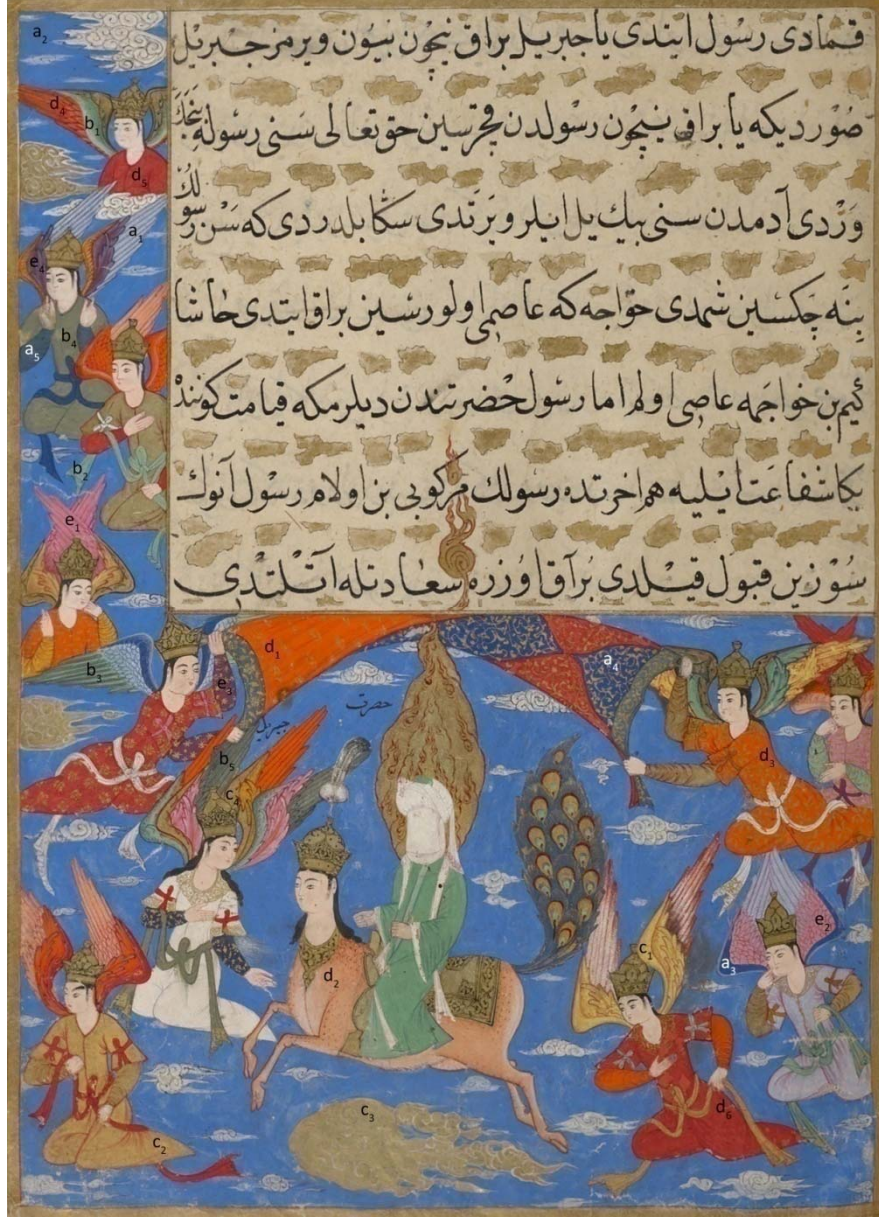 قمادی رسول ایتدی یا جبریل براق نیچون بیون ویرمز جبریل
صوردیکه یا براق نیچون رسولدن قچرسین حق تعالی سنی رسوله
وردی آدمدن سنی بیك یل ایلرو یرتدی سکا بلدردی که سن رسولك
بنه چکسین شمدی خواجه که عاصی اولورسین براق ایتدی حاشا
کیم بن خواجمه عاصی اولم اما رسول حضرتندن دیلرمکه قیامت کوننده
بکا شفاعت ایلیه هم اخرتده رسولك مرکوبی بن اولام رسول آنوك
سوزین قبول قیلدی براق اوزره سعادتله آتلندی
a₂
d₄
b₁
d₅
a₁
e₄
b₄
a₅
b₂
e₁
b₃
d₁
a₄
e₃
حضرت
جبریل
d₃
b₅
c₄
e₂
c₁
a₃
d₂
c₃
d₆
c₂